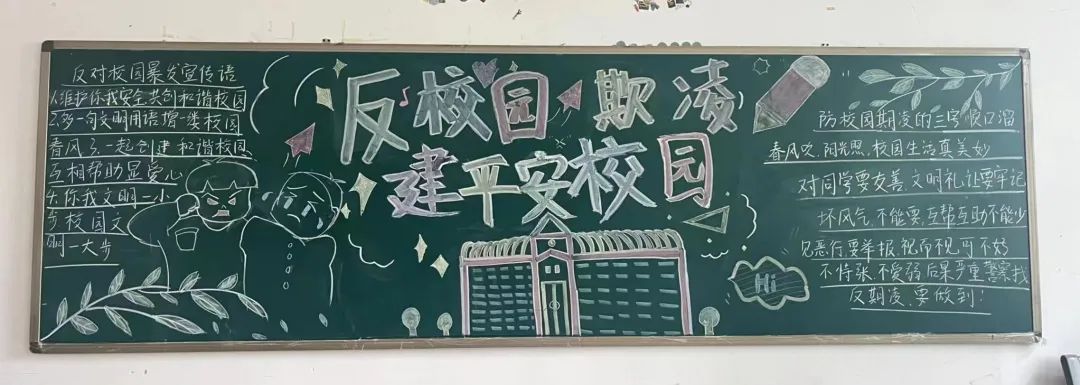 反校园欺凌
建平安校园
反对校园暴发宣传语
1.维护你我安全共创和谐校园
2.多一句文明用语增一袭校园
春风3.一起创建和谐校园
互相帮助显爱心
4.你我文明一小
步校园文
明一大步
防校园期凌的三字顺口溜
春风吹.阳光照.校园生活真美妙
对同学要友善.文明礼让要牢记
坏风气.不能要.互帮互助不能少
见恶行要举报.视而不见可不妙
不恃强.不凌弱后果严重警察找
反期凌.要做到!
Hi